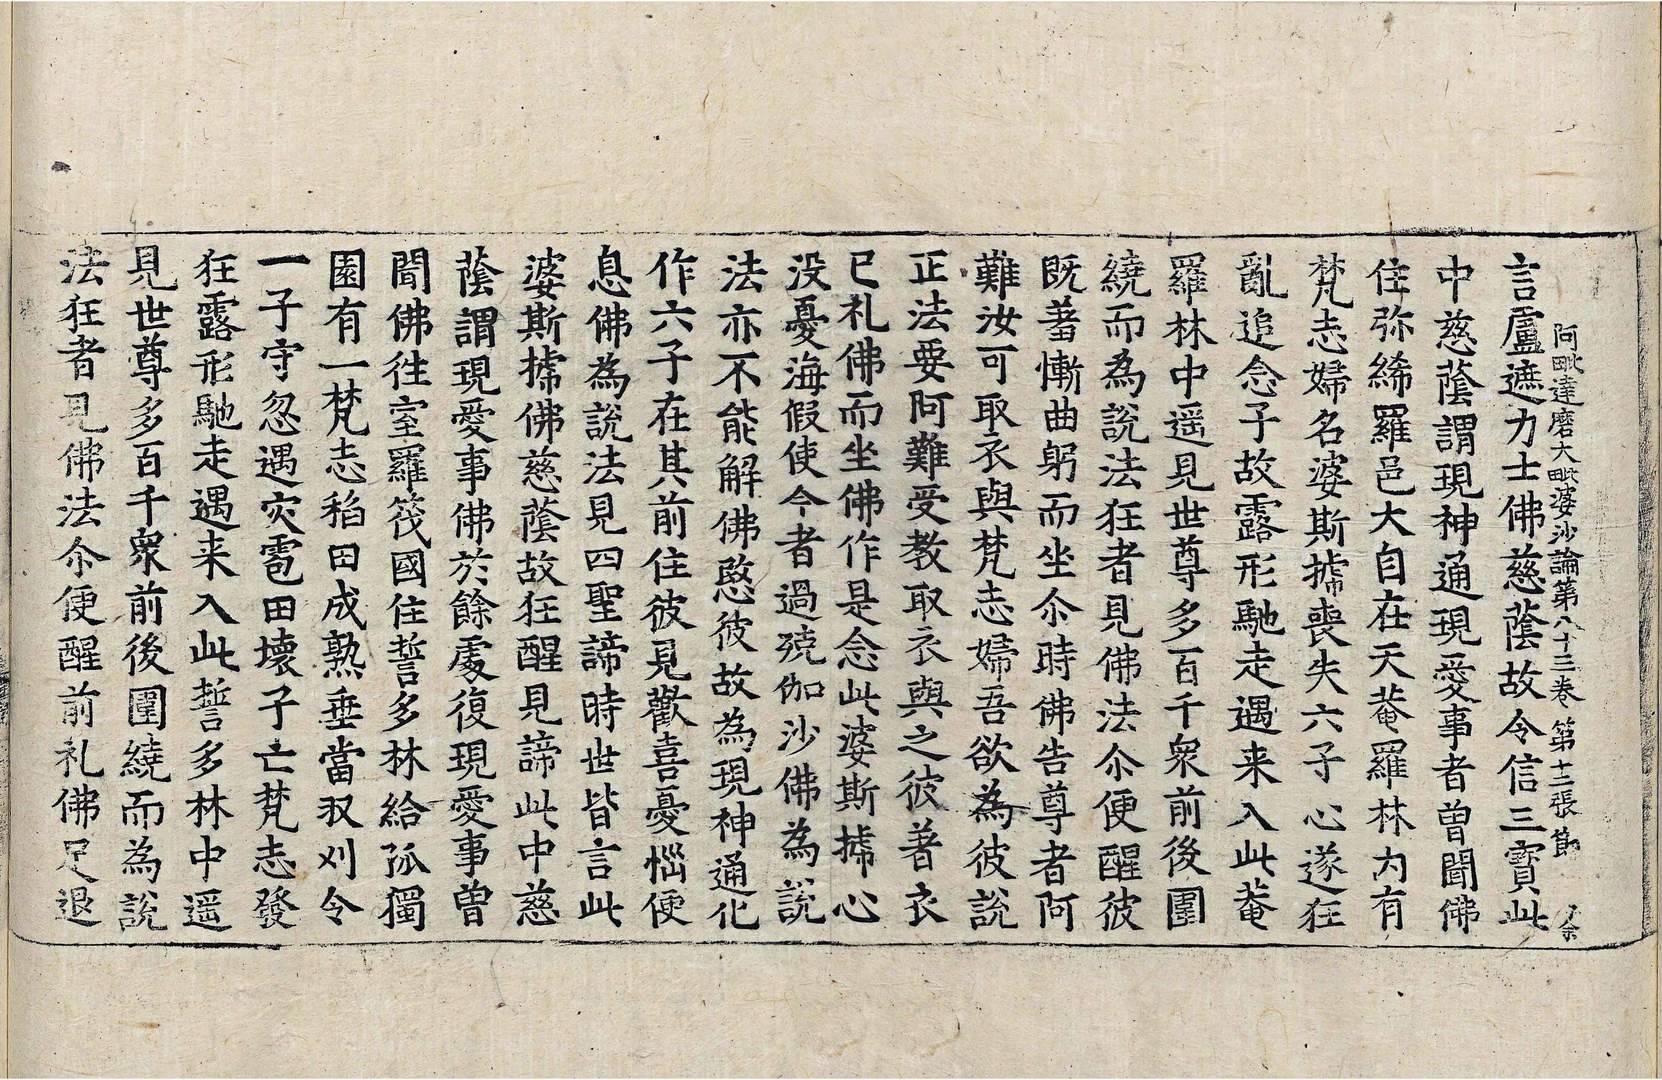 阿毗達磨大毗婆沙論第八十三卷 第十二張 節
言盧遮力士佛慈蔭故令信三寶此
中慈蔭謂現神通現愛事者曾聞佛
住弥絺羅邑大自在天菴羅林內有
梵志婦名婆斯搋喪失六子心遂狂
亂追念子故露形馳走遇来入此菴
羅林中遥見世尊多百千衆前後圍
繞而為說法狂者見佛法尒便醒彼
既羞慚曲躬而坐尒時佛告尊者阿
難汝可取衣與梵志婦吾欲為彼說
正法要阿難受教取衣與之彼著衣
已礼佛而坐佛作是念此婆斯搋心
没憂海假使今者過殑伽沙佛為說
法亦不能解佛愍彼故為現神通化
作六子在其前住彼見歡喜憂惱便
息佛為說法見四聖諦時世皆言此
婆斯搋佛慈蔭故狂醒見諦此中慈
蔭謂現愛事佛於餘處復現愛事曾
聞佛徃室羅筏國住誓多林給孤獨
園有一梵志稻田成熟垂當収刈令
一子守忽遇灾雹田壞子亡梵志發
狂露形馳走遇来入此誓多林中遥
見世尊多百千衆前後圍繞而為說
法狂者見佛法尒便醒前礼佛足退